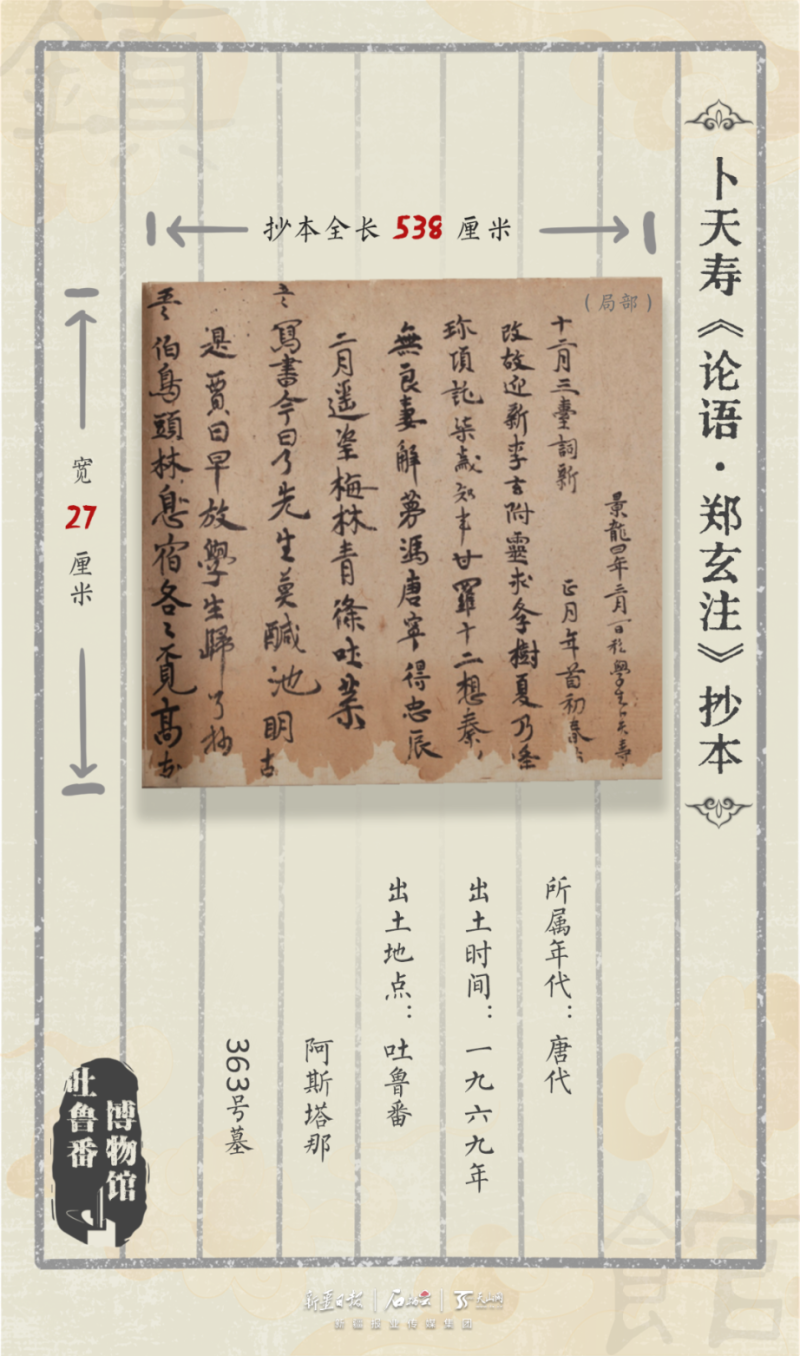 卜天寿《论语·郑玄注》抄本
抄本全长 538 厘米
宽 27 厘米
(局部)
景龍四年三月一日私學生卜天壽
十二月三臺詞新 正月年首初春
改故迎新李玄附靈求學樹夏乃逢
珎項託柒歲知事甘羅十二想秦
無良妻解夢馮唐寧得忠辰
二月遥望梅林青條吐葉
寫書今日了先生莫醎池明
是賈日早放學生歸
伯鳥頭林息宿各々覓高
所属年代：唐代
出土时间：一九六九年
出土地点：吐鲁番
阿斯塔那
363号墓
吐鲁番
博物馆
鎮
館
新疆日报
石榴云
天山网
新疆报业传媒集团